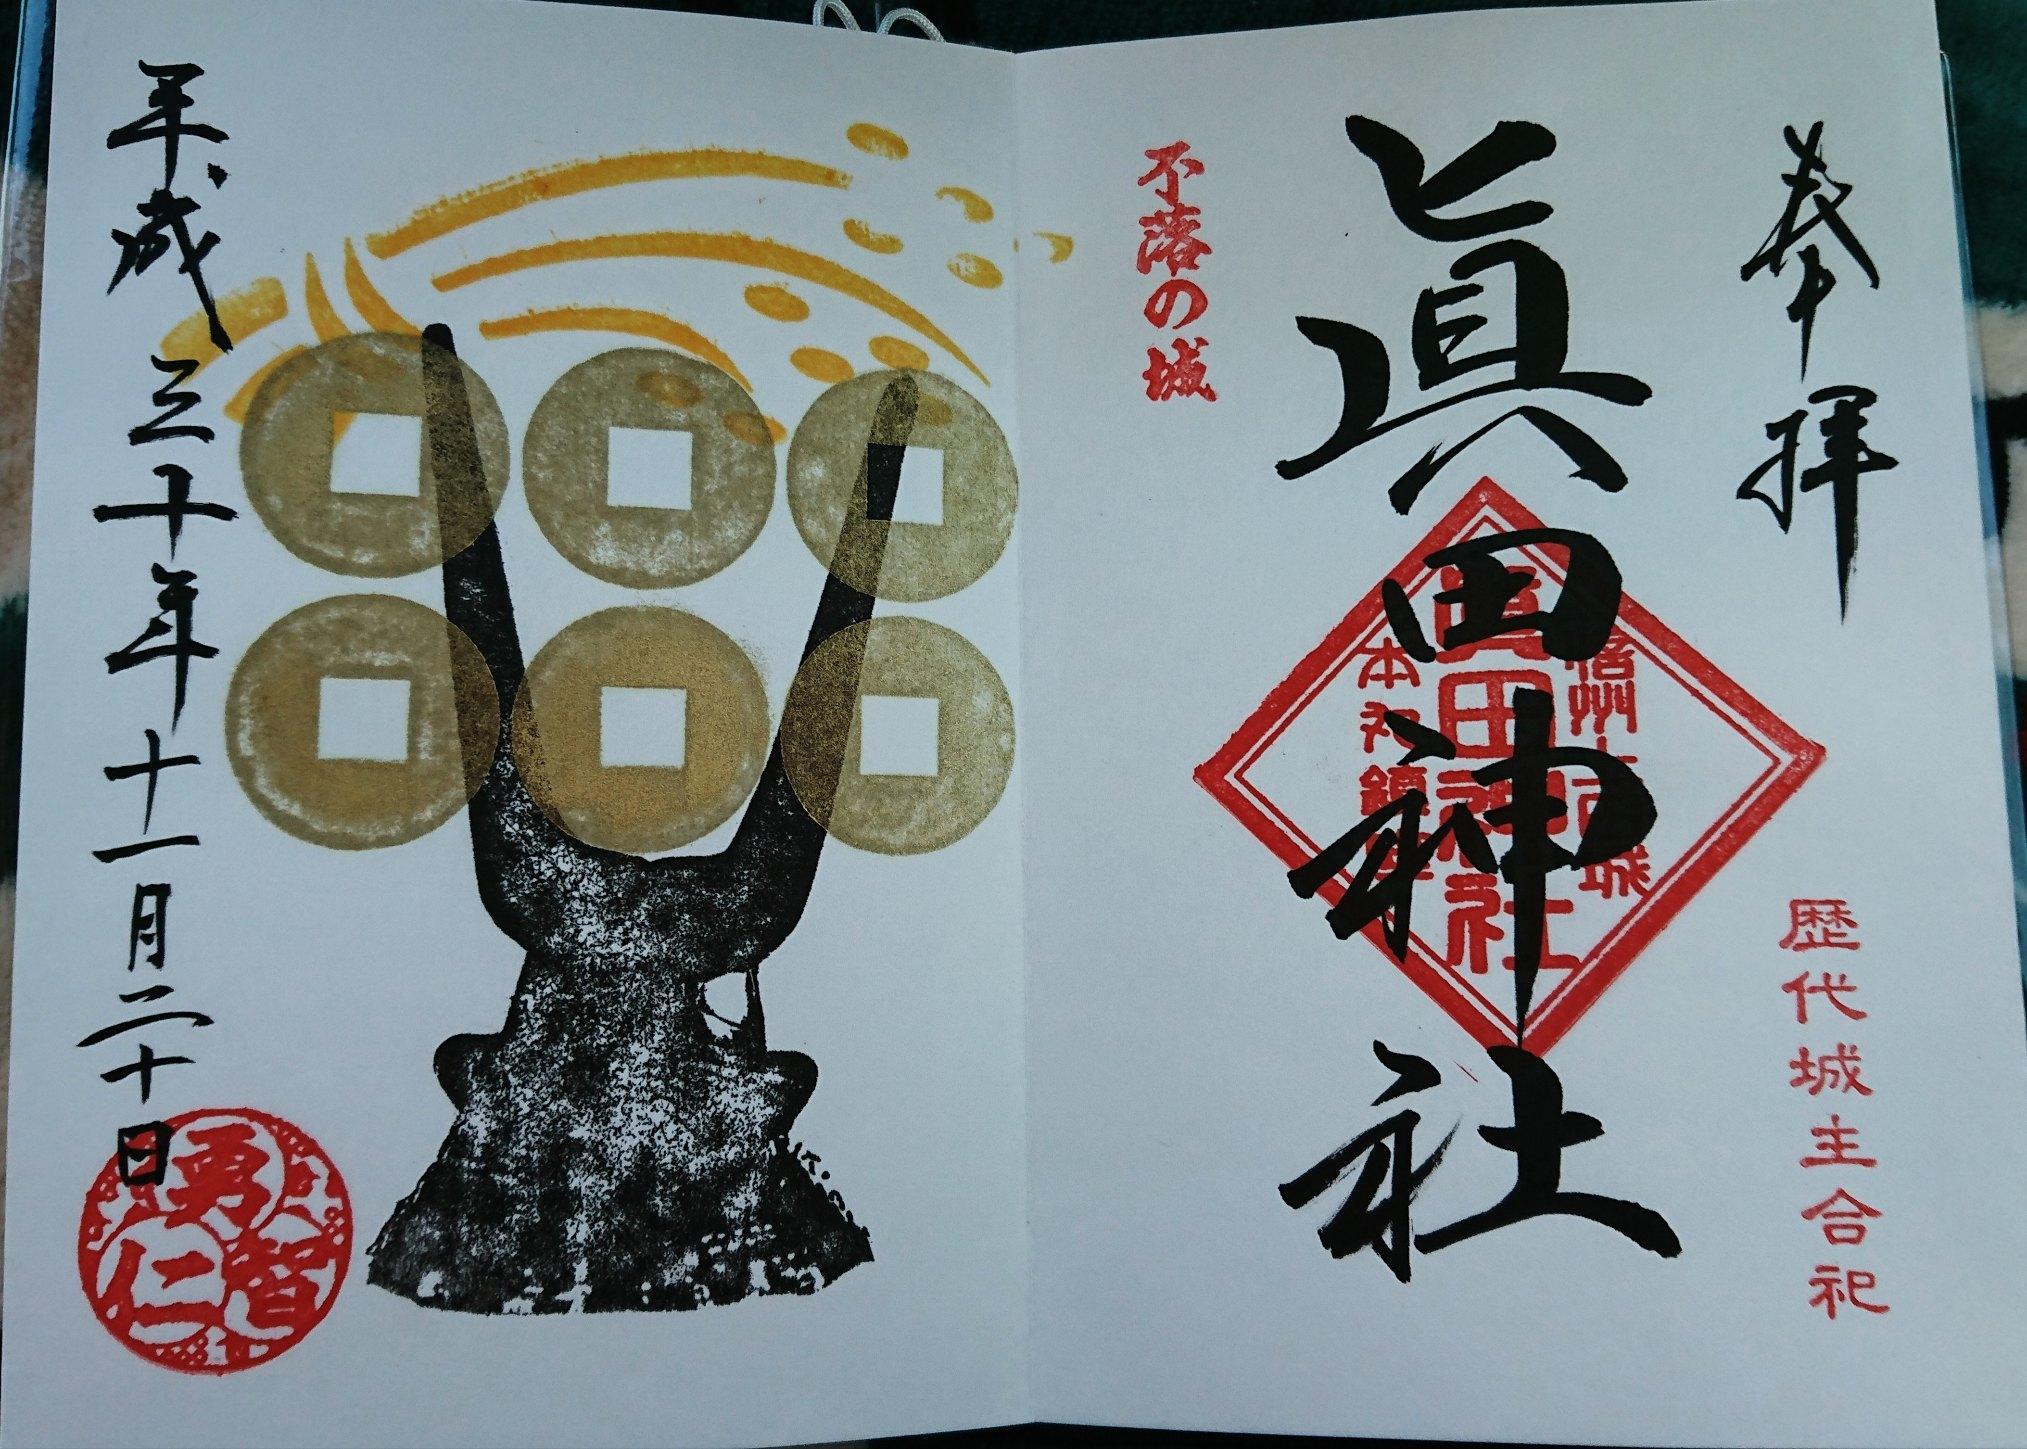 奉拝
歴代城主合祀
眞田神社
信州上田城
眞田神社
本丸鎮座
不落の城
平成三十年十一月二十日
勇
智
仁